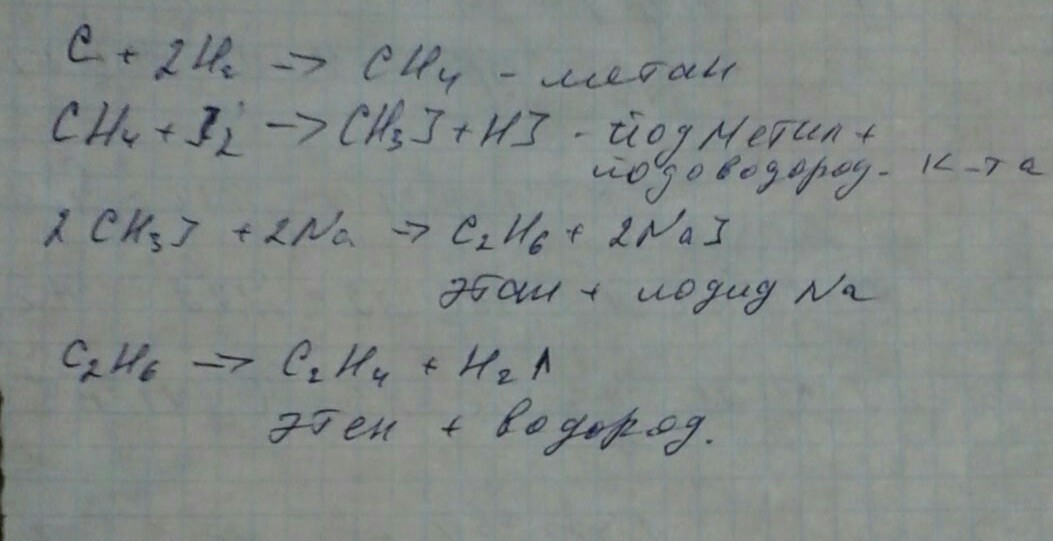 C + 2H₂ → CH₄ - метан
CH₄ + J₂ → CH₃J + HJ - йодметил +
йодоводород. к-та
2CH₃J + 2Na → C₂H₆ + 2NaJ
этан + иодид Na
C₂H₆ → C₂H₄ + H₂↑
этен + водород.